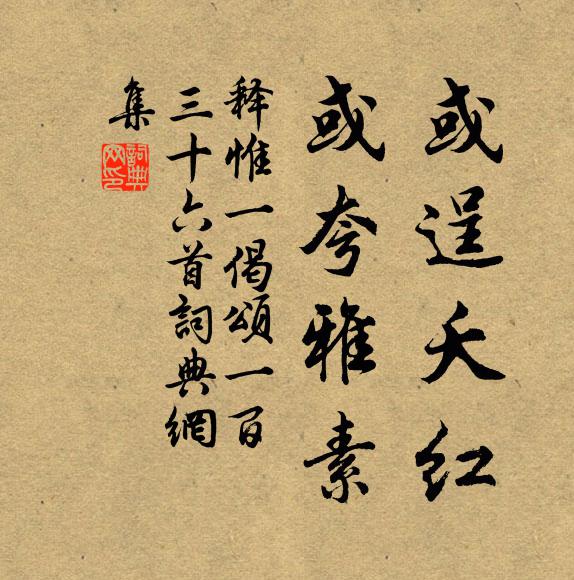 或逞夭红
或夸雅素
释惟一偈頌一百
三十六首詞典網
集
詞典网印